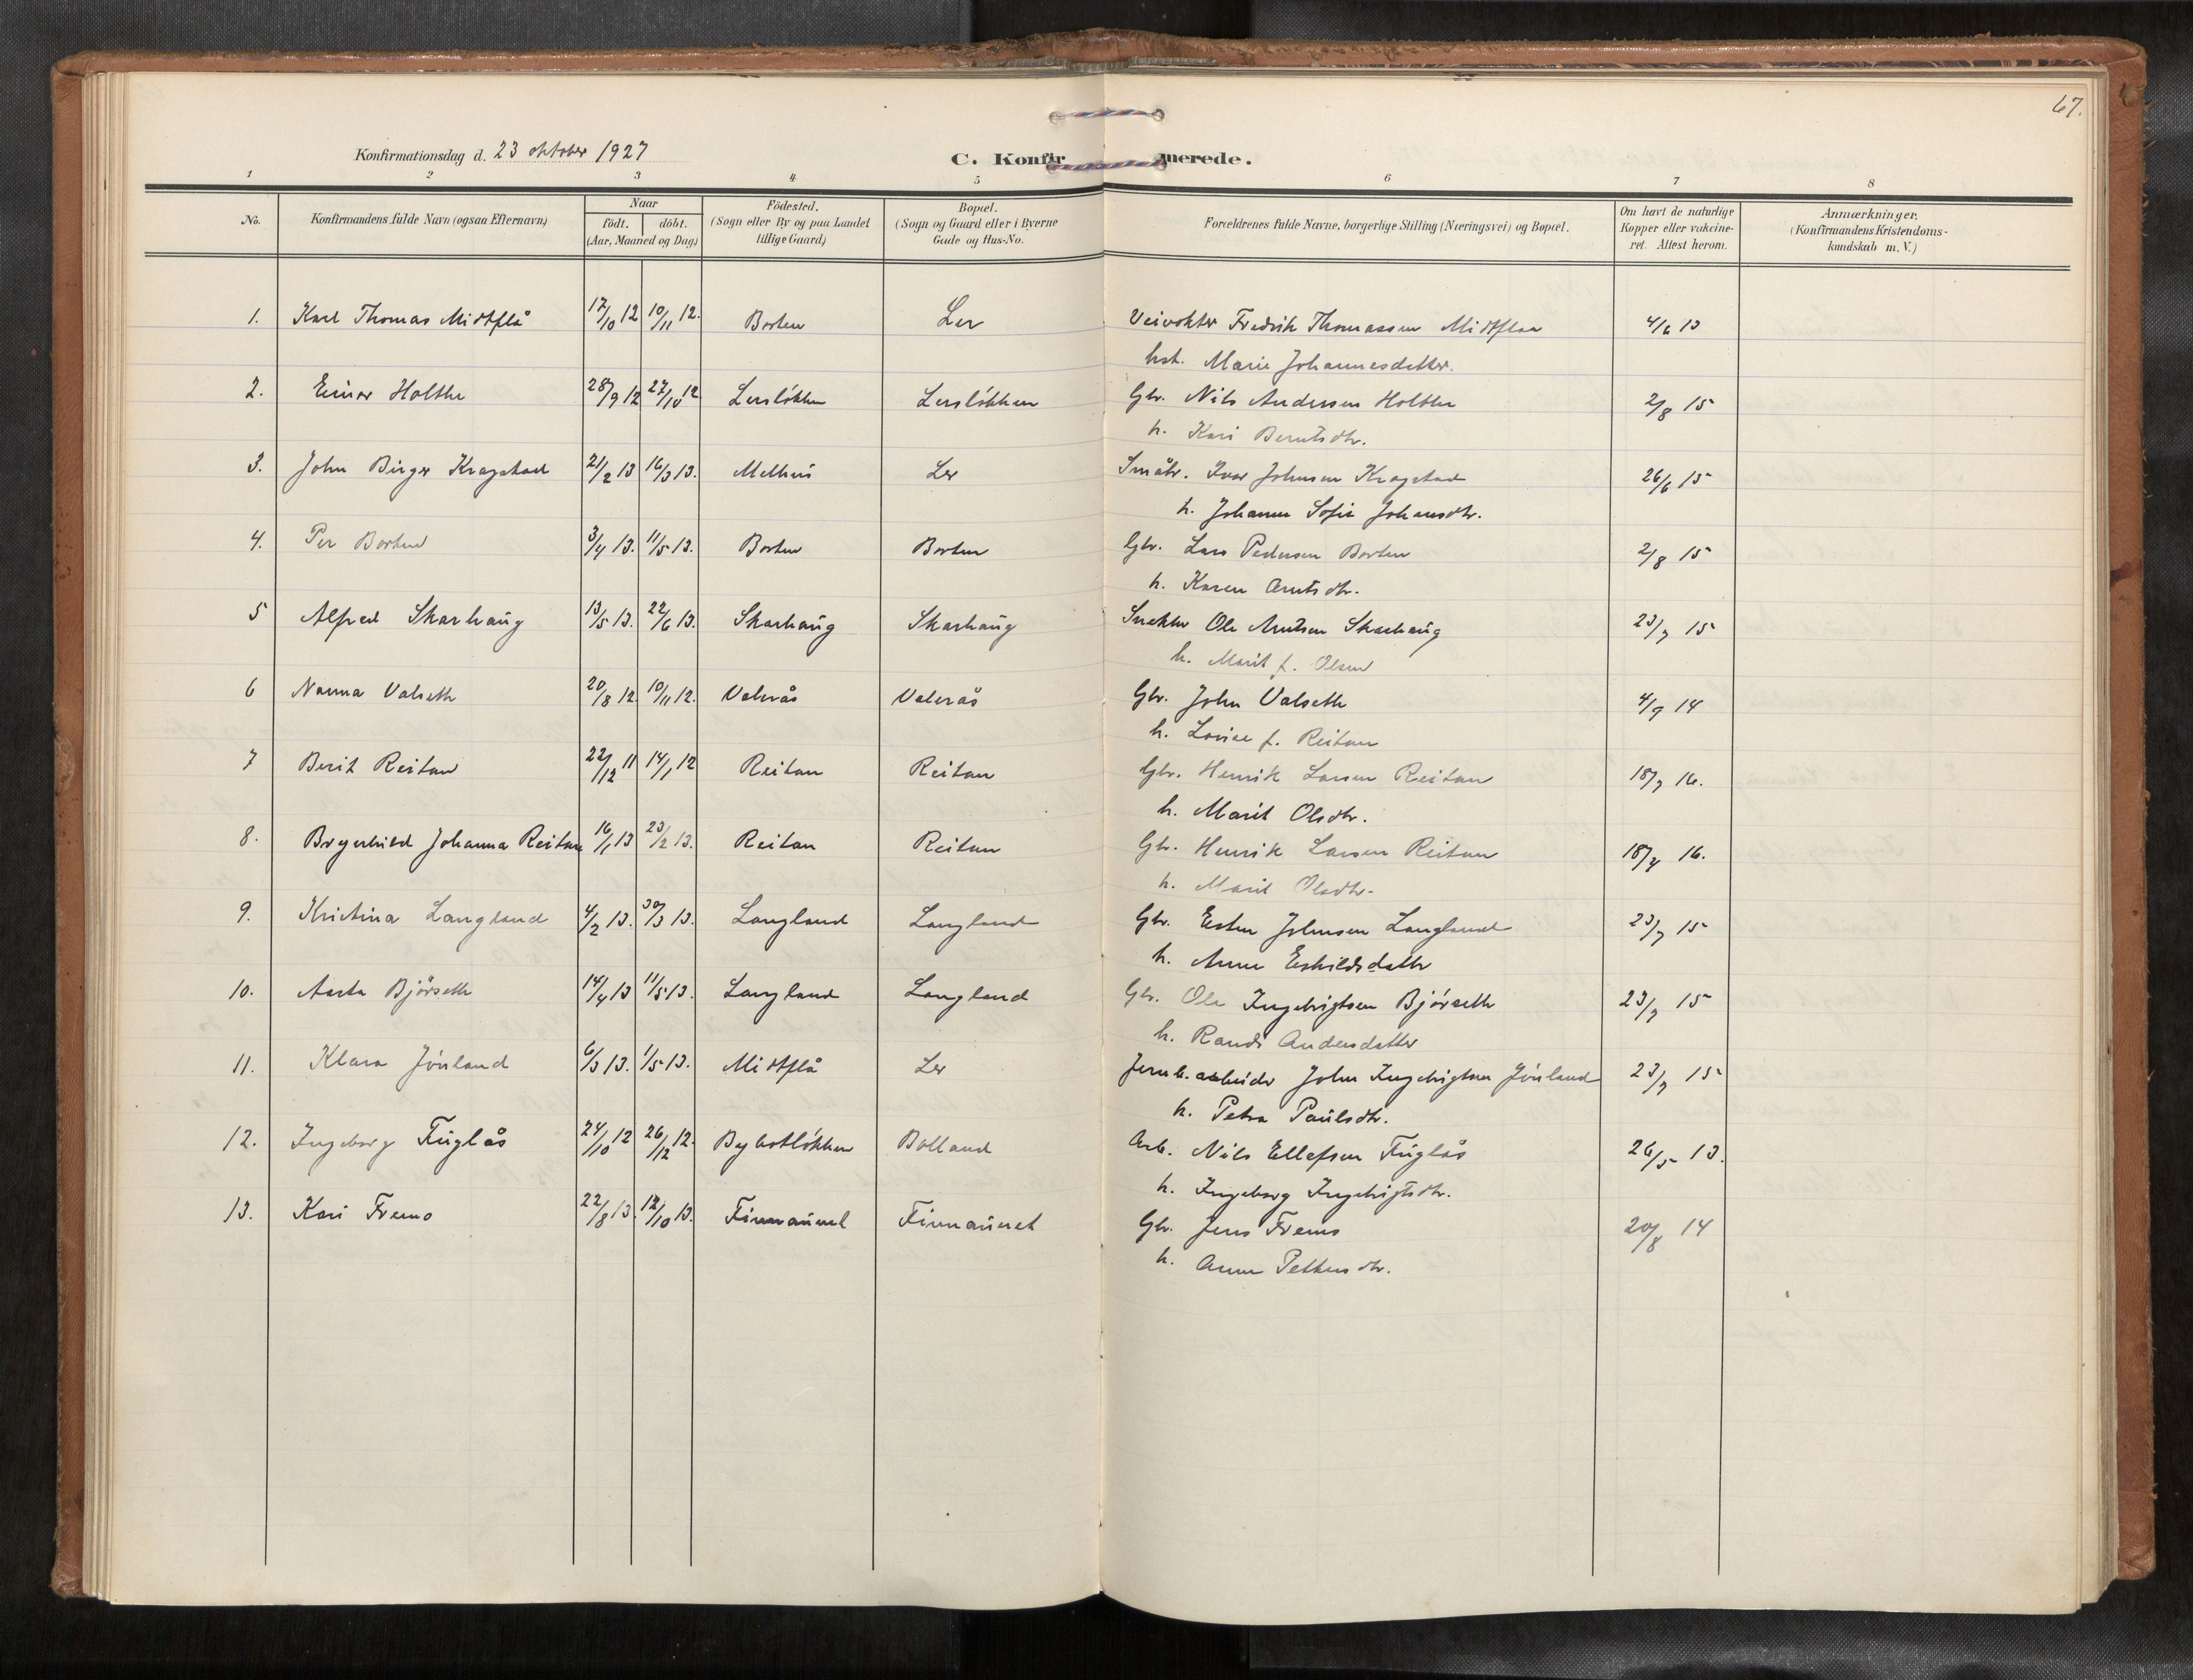 67.
Konfirmationsdag d. 23 oktober 1927
C. Konfirmerede.
1 2 3 4 5 6 7 8
No. Konfirmandens fulde Navn (ogsaa Efternavn) Naar født. døbt. (Aar, Maaned og Dag) Fødested. (Sogn eller By og paa Landet tillige Gaard) Bopæl. (Sogn og Gaard eller i Byerne Gade og Hus-No. Forældrenes fulde Navne, borgerlige Stilling (Næringsvei) og Bopæl. Om havt de naturlige Kopper eller vakcineret. Attest herom. Anmærkninger. (Konfirmandens Kristendomskundskab m. V.)
1. Karl Thomas Midtflå 17/10 12 10/11 12. Borten Ler Veivokter Fredrik Thomassen Midtflaa 4/6 13
hst. Marie Johannesdatter.
2. Einar Holthe 28/9 12 27/10 12 Lersløkken Lersløkken Gbr. Nils Andersen Holthe 2/8 15
h. Kari Berntsdtr.
3. John Birger Kragstad 21/2 13 16/3 13. Melhus Ler Småbr. Ivar Johnsen Kragstad 26/6 15
h. Johanna Sofie Johansdtr.
4. Per Borten 3/4 13. 11/5 13. Borten Borten Gbr. Lars Pedersen Borten 2/8 15
h. Karen Arntsdtr.
5 Alfred Skarhaug 13/5 13. 22/6 13. Skarhaug Skarhaug Snekker Ole Arntsen Skarhaug 23/7 15
h. Marit f. Olsen
6 Nanna Valseth 20/8 12. 10/11 12. Valsrås Valsrås Gbr. John Valseth 4/9 14
h. Lovise f. Reitan
7 Berit Reitan 22/12 11 14/1 12 Reitan Reitan Gbr. Henrik Larsen Reitan 18/7 16.
h. Marit Olsdtr.
8. Brynhild Johanna Reitan 16/1 13 23/2 13. Reitan Reitan Gbr. Henrik Larsen Reitan 18/7 16.
h. Marit Olsdtr.
9. Kristina Langland 4/2 13. 30/3 13. Langland Langland Gbr. Esten Johnsen Langland 23/7 15
h. Anne Eskildsdatter
10. Aasta Bjørseth 14/4 13 11/5 13. Langland Langland Gbr. Ole Ingebrigtsen Bjørseth 23/7 15
h. Randi Andersdatter
11. Klara Jørland 6/3 13. 1/5 13. Midtflå Ler Jernb.arbeider John Ingebrigtsen Jørland 23/7 15
h. Petra Paulsdtr.
12. Ingeborg Fuglås 24/10 12 26/12 12. Bolland Arb. Nils Ellefsen Fuglås 26/5 13.
h. Ingeborg Ingebrigtsdtr.
13. Kari Fremo 22/8 13. 12/10 13. Finmaunet Finmaunet Gbr. Jens Fremo 20/8 14
h. Anne Pettersdtr.